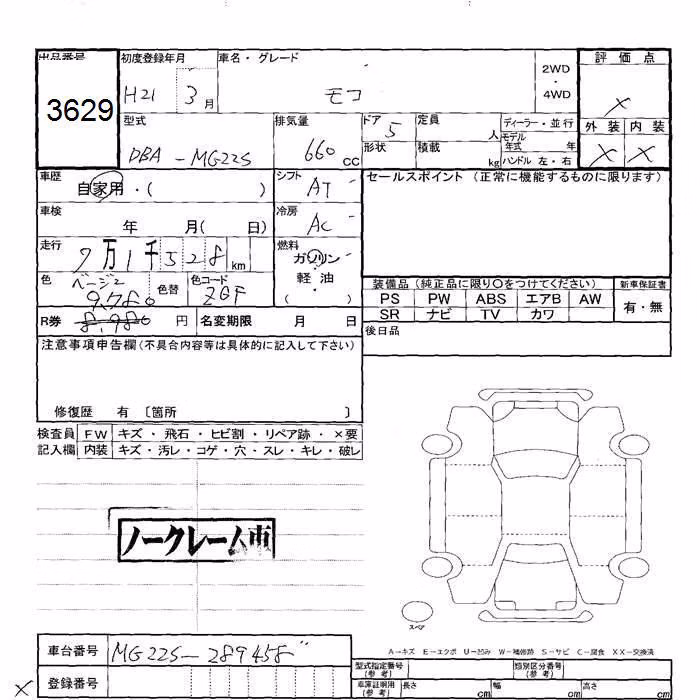 出品番号 初度登録年月 車名・グレード 2WD・4WD 評価点
3629 H21 3月 モコ X
外装 内装
X X
型式 排気量 ドア 定員 人 ディーラー・並行
DBA-MG22S 660cc 5 モデル年式 年
形状 積載 kg ハンドル 左・右
車歴 自家用・( ) シフト AT セールスポイント (正常に機能するものに限ります)
車検 年 月( 日) 冷房 AC
走行 7万1千528km 燃料 ガソリン・軽油・( )
色 ベージュ 色替 色コード ZGF
装備品 (純正品に限り○をつけてください) 新車保証書
PS PW ABS エアB AW 有・無
SR ナビ TV カワ
9,780
R券 8,980 円 名変期限 月 日
後日品
注意事項申告欄(不具合内容等は具体的に記入して下さい)
修復歴 有 〔箇所 〕
検査員 FW キズ・飛石・ヒビ割・リペア跡・×要
記入欄 内装 キズ・汚レ・コゲ・穴・スレ・キレ・破レ
ノークレーム車
スペア
A-キズ E-エクボ U-凹み W-補修跡 S-サビ C-腐食 XX-交換済
車台番号 MG22S-289458
型式指定番号(参考) 類別区分番号(参考)
X 登録番号
車庫証明用(参考) 長さ cm 幅 cm 高さ cm